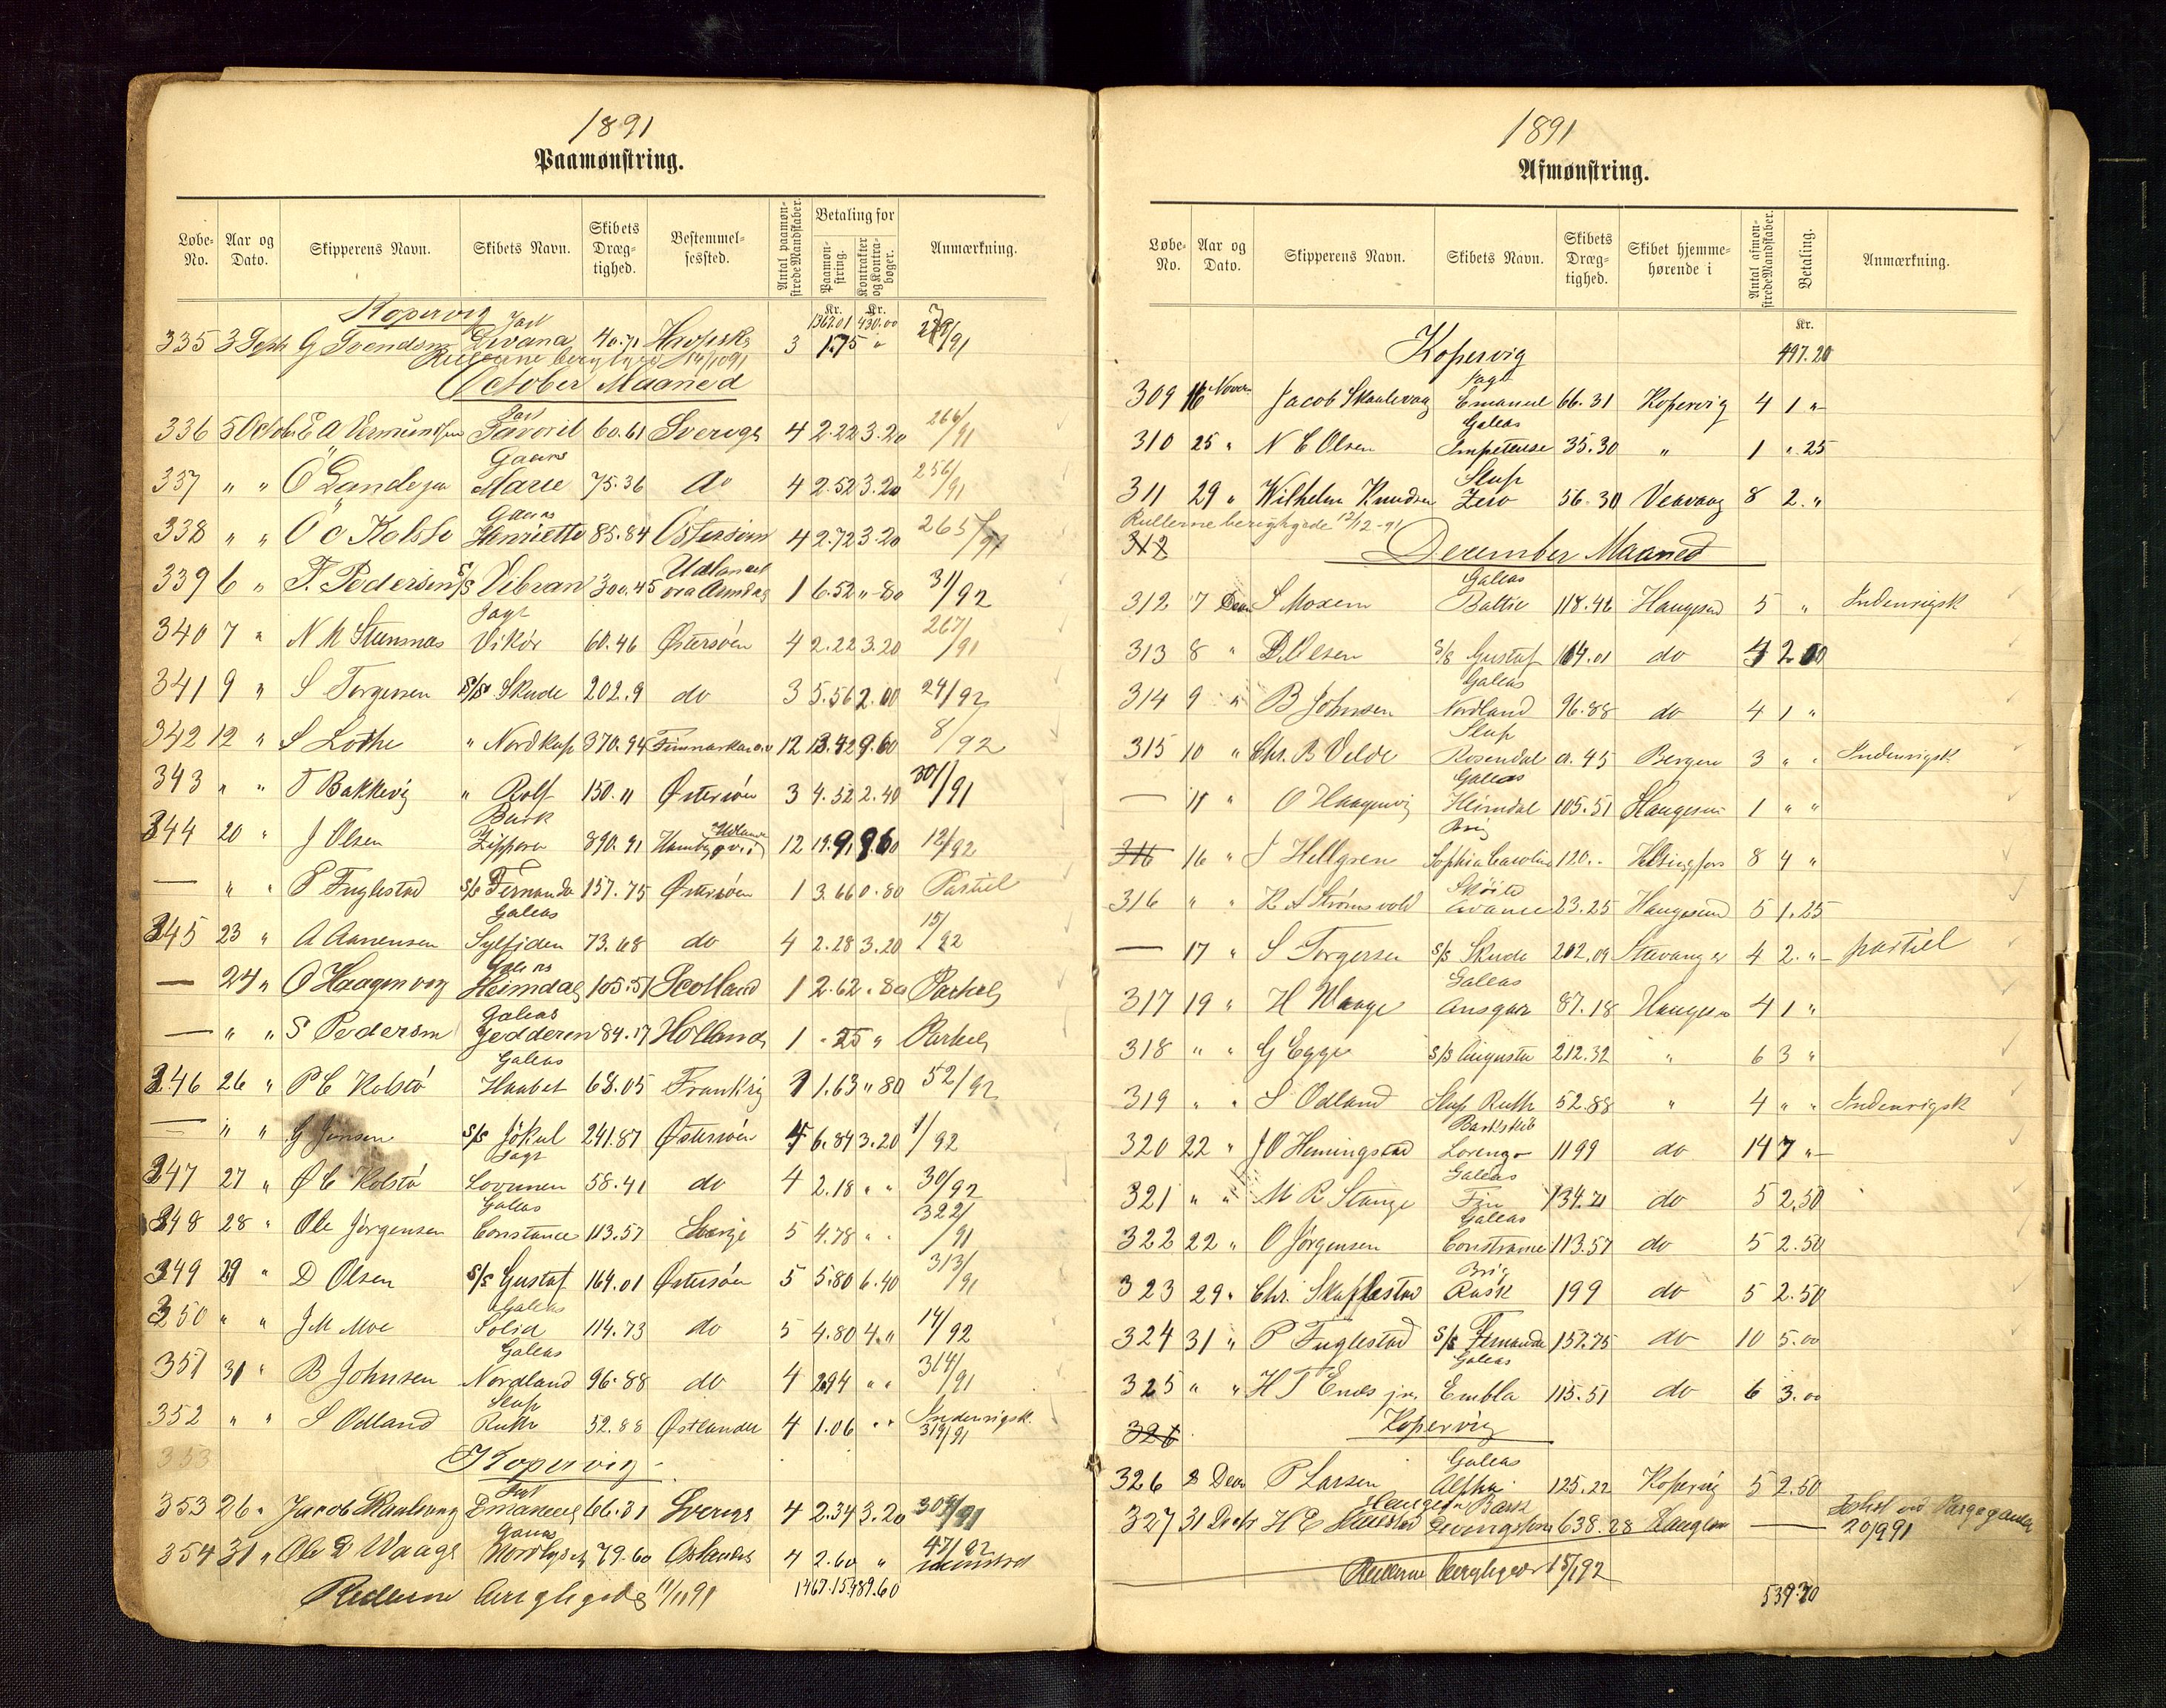 1891
Paamønstring.
Løbe-No. Aar og Dato. Skipperens Navn. Skibets Navn. Skibets Dræg-tighed. Bestemmel-sessted. Antal paamøn-strede Mandskaber. Betaling for Paamøn-string. Kontrakter og Kontra-bøger. Anmærkning.
Kopervig Kr. 1362.01 Kr. 430.00
335 3 Septb G Svendsen Jagt Divana 40.71 3 1.75 "
October Maaned
336 5 Octob E A Edmundsen Jagt Favorit 60.61 Sverige 4 2.22 3.20 266/91
337 " " O Lande jun Galeas Marie 75.36 do 4 2.52 3.20 256/91
338 " " O C Kolstø Galeas Henriette 85.84 Østersøen 4 2.72 3.20 265/91
339 6 " T. Pedersen S/S Vibran 300.45 Udlandet via 1 6.52 "-80 31/92
340 7 " N M Stensnæs Jagt Vikør 60.46 Østersøen 4 2.22 3.20 267/91
341 9 " S Torgersen S/S Skude 202.9 do 3 5.56 2.00 24/92
342 12 " S Lothe " Nordkap 370.94 12 13.42 9.60 8/92
343 " " T Bakkevig " Rolf 150.11 Østersøen 3 4.52 2.40 301/91
344 20 " J Olsen Bark Zippora 390.91 Hamburg Udlandet 12 19.91 9.60 12/92
— " " P Fuglestad S/S Fernanda 157.75 Østersøen 1 3.66 0.80 Partiel
345 23 " A Aanensen Galeas Sylfiden 73.68 do 4 2.28 3.20 15/92
— 24 " O Haagenvig Galeas Heimdal 105.51 Scotland 1 2.62 ".80 Partiel
— " " S Pedersen Galeas Jedderen 84.17 Holland 1 "25 " Partiel
346 26 " P C Kolstø Galeas Haabet 68.05 Frankrig 1 1.63 "80 52/92
— " " G Jensen S/S Jökul 241.87 Østersøen 4 6.84 3.20 1/92
347 27 " Ø C Kolstø Jagt Lovunen 58.41 do 4 2.18 " " 30/92
348 28 " Ole Jørgensen Galeas Constance 113.57 Sverige 5 4.78 " " 322/91
349 29 " D Olsen S/S Gustaf 164.01 Østersøen 5 5.80 6.40 313/91
350 " " J M Moe Galeas Solid 114.73 do 5 4.80 4." 14/92
351 31 " B Johnsen Galeas Nordland 96.88 do 4 2.94 " " 314/91
352 " " S Odland Slup Ruth 52.88 Østlandet 4 1.06 " " Indenrigsk. 319/91
353 Kopervig
353 26 " Jacob Skaalevaag Jagt Emanuel 66.31 Sverige 4 2.34 3.20 309/91
354 31 " Ole D Waage Galeas Nordlyset 79.60 Østlandet 4 2.60 " 47/92
Rullerne berigtigede 11/11 91 1467.15 489.60
1891
Afmønstring.
Løbe-No. Aar og Dato. Skipperens Navn. Skibets Navn. Skibets Dræg-tighed. Skibet hjemme-hørende i Antal afmøn-strede Mandskaber. Betaling. Anmærkning.
Kopervig Kr. 497.20
309 16 Novem Jacob Skaalevaag Jagt Emanuel 66.31 Kopervig 4 1 "-
310 25 " N E Olsen Galeas Impeteuse 35.30 " 1 ".25
311 29 " Wilhelm Knudsen Slup Zero 56.30 Veavaag 8 2."
Rullerne berigtigede 12/12-91
312 December Maaned
312 7 Decbr S Moxem Galeas Baltic 118.42 Haugesund 5 " Indenrigsk
313 8 " D. Olsen S/S Gustaf 164.01 do 4 2.00
314 9 " B Johnsen Galeas Nordland 96.88 do 4 1 "
315 10 " Chr. B Velde Slup Rosendal a. 45 Bergen 3 " " Indenrigsk
— 11 " O Haagenvig Galeas Heimdal 105.51 Haugesund 1 " "
316 16 " J Hellgren Brig Sophia Caroline 120.- Helsingfors 8 4 "
316 " " K A Strømsvold Skøite Avance 23.25 Haugesund 5 1.25
— 17 " S Torgersen S/S Skude 202.09 Stavanger 4 2."- partiel
317 19 " H Waage Galeas Ansgar 87.18 Haugesund 4 1 "
318 " " G Egge S/S Augusta 212.32 " 6 3 "
319 " " S Odland Slup Ruth 52.88 " 4 " " Indenrigsk
320 22 " J O Hemingstad Barkskib Lorengo 1199 do 14 7 "-
321 " " M R Stange Galeas Fin 134.21 do 5 2.50
322 22 " O Jørgensen Galeas Constance 113.57 do 5 2.50
323 29 " Chr. Skaftestad Brig Rask 199 do 5 2.50
324 31 " P Fuglestad S/S Fernanda 157.75 do 10 5.00
325 " " H T Enæs jr. Galeas Embla 115.51 do 6 3.00
326 Kopervig
326 8 Decr P Larsen Galeas Alpha 125.22 Kopervig 5 2.50
327 31 Decbr H E Bark 638.28 Haugesund — 20/9 91
Rullerne berigtigede 15/1 92
539.70